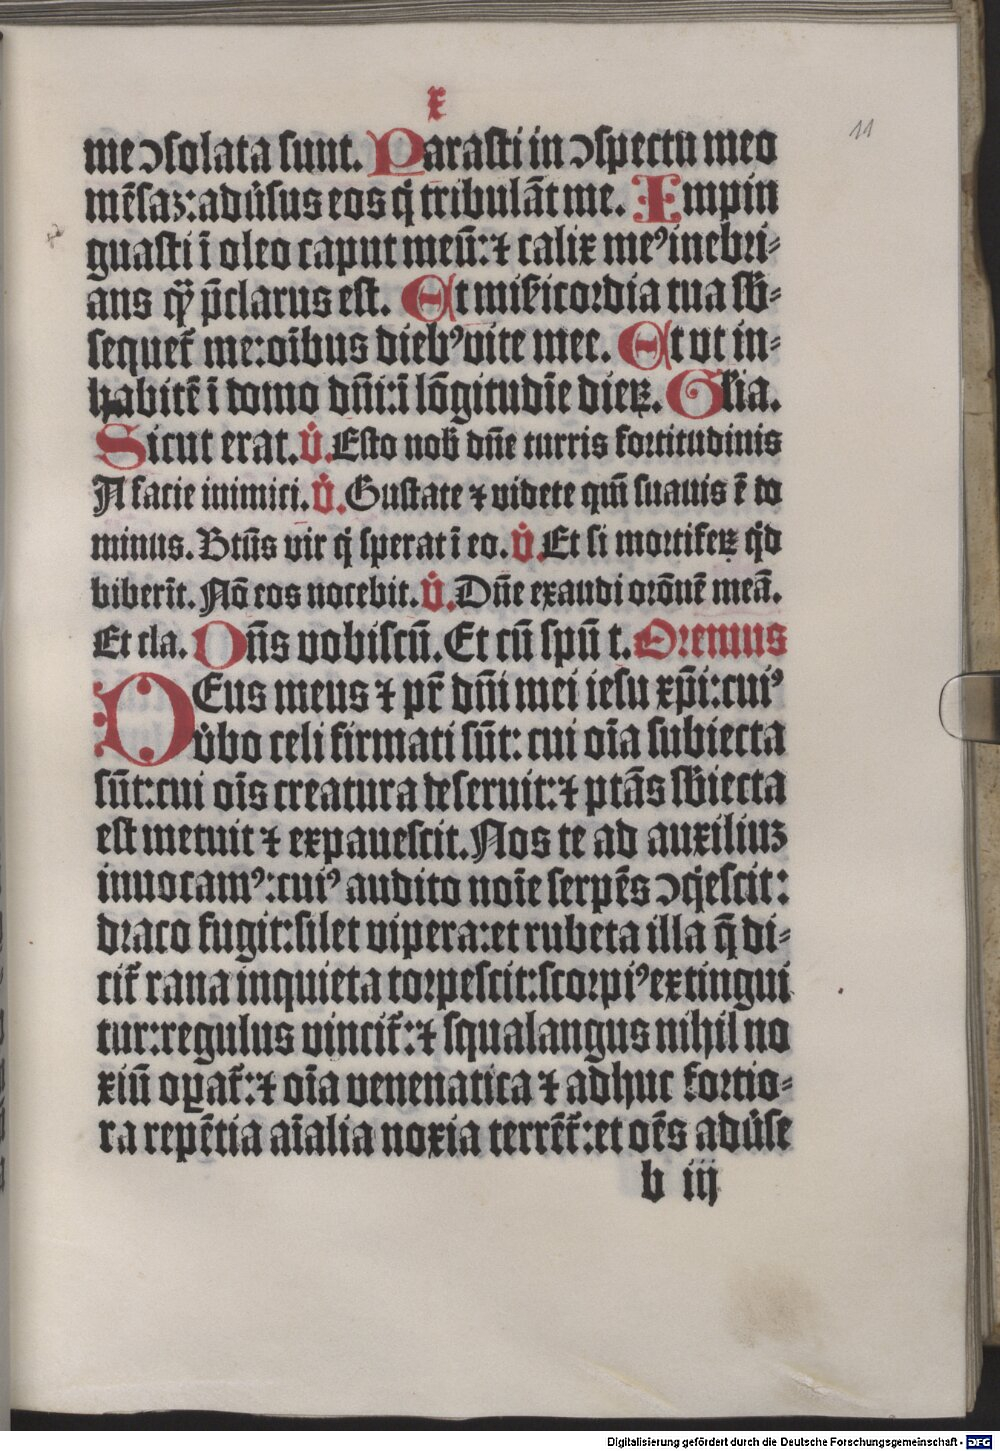 x
11
me ↄsolata sunt. Parasti in ↄspectu meo
mēsaꝫ: adúsus eos q̇ tribulāt me. Impin
guasti ī oleo caput meū: ⁊ calix meꝰ inebri⸗
ans qͥ p̄clarus est. Et misẜicordia tua sb̄⸗
sequet᷑ me: oībus diebꝰ vite mee. Et vt in⸗
habitē ī domo dn̄i: ī lōgitudīe dieꝝ. Gl̄ia.
Sicut erat. v̇. Esto nob̄ dn̄e turris fortitudinis
A facie inimici. v̇. Gustate ⁊ videte qm̄ suauis ē do
minus. Btūs vir q̇ sperat ī eo. v̇. Et si mortifeꝝ qͥd
biberīt. Nō eos nocebit. v̇. Dn̄e exaudi orōnē meā.
Et cla. Dn̄s vobiscū. Et cū spū t. Oremus
DEus meus ⁊ pr̄ dn̄i mei iesu xp̄i: cuiꝰ
v̇bo celi firmati sūt: cui oīa subiecta
sūt: cui oīs creatura deseruit: ⁊ ptās sb̄iecta
est metuit ⁊ expauescit. Nos te ad auxiliuꝫ
inuocamꝰ: cuiꝰ audito noīe serpēs ↄq̇escit:
draco fugit: silet vipera: et rubeta illa q̄ di⸗
cit᷑ rana inquieta torpescit: scorpiꝰ extingui
tur: regulus vincit᷑: ⁊ squalangus nihil no
xiū oꝑat᷑: ⁊ oīa venenatica ⁊ adhuc fortio⸗
ra repētia aīalia noxia terrēt᷑: et oēs adv̇se
b iij
Digitalisierung gefördert durch die Deutsche Forschungsgemeinschaft - DFG